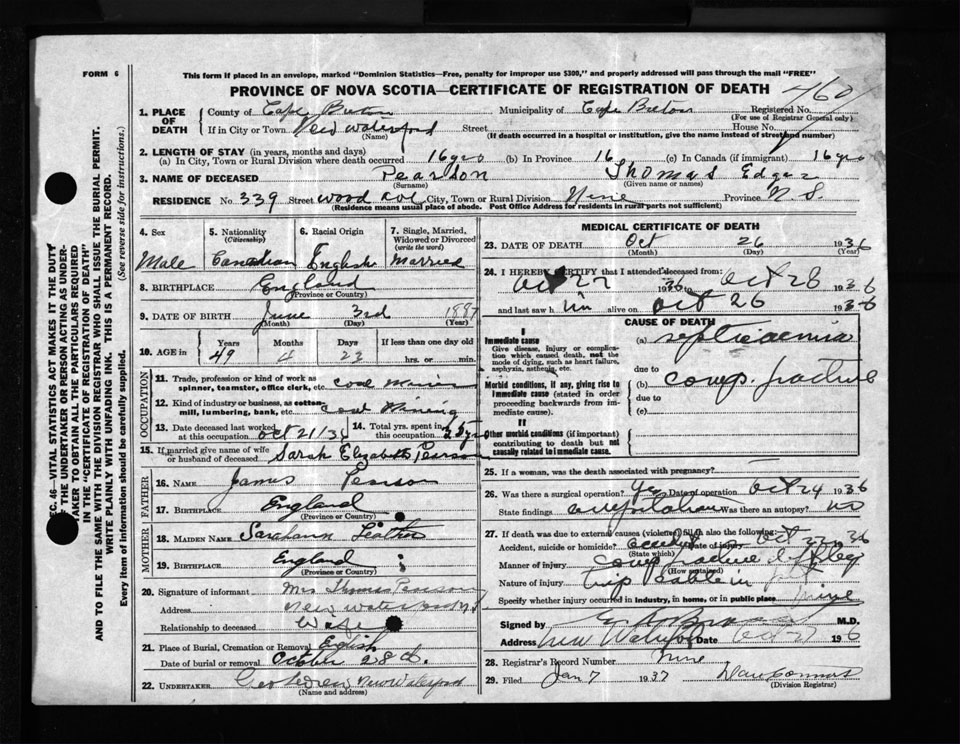 FORM 6
This form if placed in an envelope, marked "Dominion Statistics—Free, penalty for improper use $300," and properly addressed will pass through the mail "FREE"
PROVINCE OF NOVA SCOTIA—CERTIFICATE OF REGISTRATION OF DEATH
460
1. PLACE OF DEATH County of Cape Breton Municipality of Cape Breton Registered No.
(For use of Registrar General only)
If in City or Town New Waterford Street House No.
(Name) (If death occurred in a hospital or institution, give the name instead of street and number)
2. LENGTH OF STAY (in years, months and days)
(a) In City, Town or Rural Division where death occurred 16 yrs (b) In Province 16 (c) In Canada (if immigrant) 16 yrs
3. NAME OF DECEASED Pearson Thomas Edgar
(Surname) (Given name or names)
RESIDENCE No. 339 Street Wood City, Town or Rural Division Province N.S.
(Residence means usual place of abode. Post Office Address for residents in rural parts not sufficient)
4. Sex 5. Nationality (Citizenship) 6. Racial Origin 7. Single, Married, Widowed or Divorced (write the word)
Male Canadian English Married
8. BIRTHPLACE England
(Province or Country)
9. DATE OF BIRTH June 3rd 1887
(Month) (Day) (Year)
10. AGE in Years Months Days If less than one day old
49 4 23 hrs. or min.
OCCUPATION
11. Trade, profession or kind of work as spinner, teamster, office clerk, etc. Coal Miner
12. Kind of industry or business, as cotton-mill, lumbering, bank, etc. Coal Mining
13. Date deceased last worked at this occupation Oct 21/36 14. Total yrs. spent in this occupation 25 yrs
15. If married give name of wife or husband of deceased Sarah Elizabeth Pearson
FATHER
16. NAME James Pearson
17. BIRTHPLACE England
(Province or Country)
MOTHER
18. MAIDEN NAME Sarahann
19. BIRTHPLACE England
(Province or Country)
20. Signature of informant Mrs Thomas Pearson
Address New Waterford
Relationship to deceased Wife
21. Place of Burial, Cremation or Removal
Date of burial or removal October 28th.
22. UNDERTAKER New Waterford
(Name and address)
MEDICAL CERTIFICATE OF DEATH
23. DATE OF DEATH Oct 26 1936
(Month) (Day) (Year)
24. I HEREBY CERTIFY that I attended deceased from:
Oct 22 1936 to Oct 26 1936
and last saw him alive on Oct 26 1936
CAUSE OF DEATH
I
Immediate cause
Give disease, injury or complication which caused death, not the mode of dying, such as heart failure, asphyxia, asthenia, etc.
(a) septicaemia
due to
Morbid conditions, if any, giving rise to immediate cause (stated in order proceeding backwards from immediate cause).
(b) comp. fracture
due to
(c)
II
Other morbid conditions (if important) contributing to death but not causally related to immediate cause.
25. If a woman, was the death associated with pregnancy?
26. Was there a surgical operation? Yes Date of operation Oct 24 1936
State findings amputation Was there an autopsy? no
27. If death was due to external causes (violence) fill in also the following:
Accident, suicide or homicide? accident Date of injury Oct 22 1936
(State which)
Manner of injury comp fracture leg
(How sustained)
Nature of injury
Specify whether injury occurred in industry, in home, or in public place mine
Signed by M.D.
Address New Waterford Date Oct 27 1936
28. Registrar's Record Number
29. Filed Jan 7 1937
(Division Registrar)
SEC. 46—VITAL STATISTICS ACT MAKES IT THE DUTY OF THE UNDERTAKER OR PERSON ACTING AS UNDERTAKER TO OBTAIN ALL THE PARTICULARS REQUIRED IN THE "CERTIFICATE OF REGISTRATION OF DEATH" AND TO FILE THE SAME WITH THE DIVISION REGISTRAR WHO SHALL ISSUE THE BURIAL PERMIT.
WRITE PLAINLY WITH UNFADING INK. THIS IS A PERMANENT RECORD.
Every item of information should be carefully supplied. (See reverse side for instructions.)